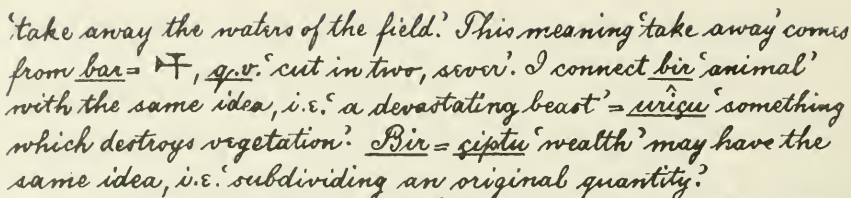 'take away the waters of the field.' This meaning 'take away' comes
from bar = 𒈦, q.v. 'cut in two, sever'. I connect bir 'animal'
with the same idea, i.e. 'a devastating beast' = urîçu 'something
which destroys vegetation.' Bir = çiptu 'wealth' may have the
same idea, i.e. 'subdividing an original quantity.'